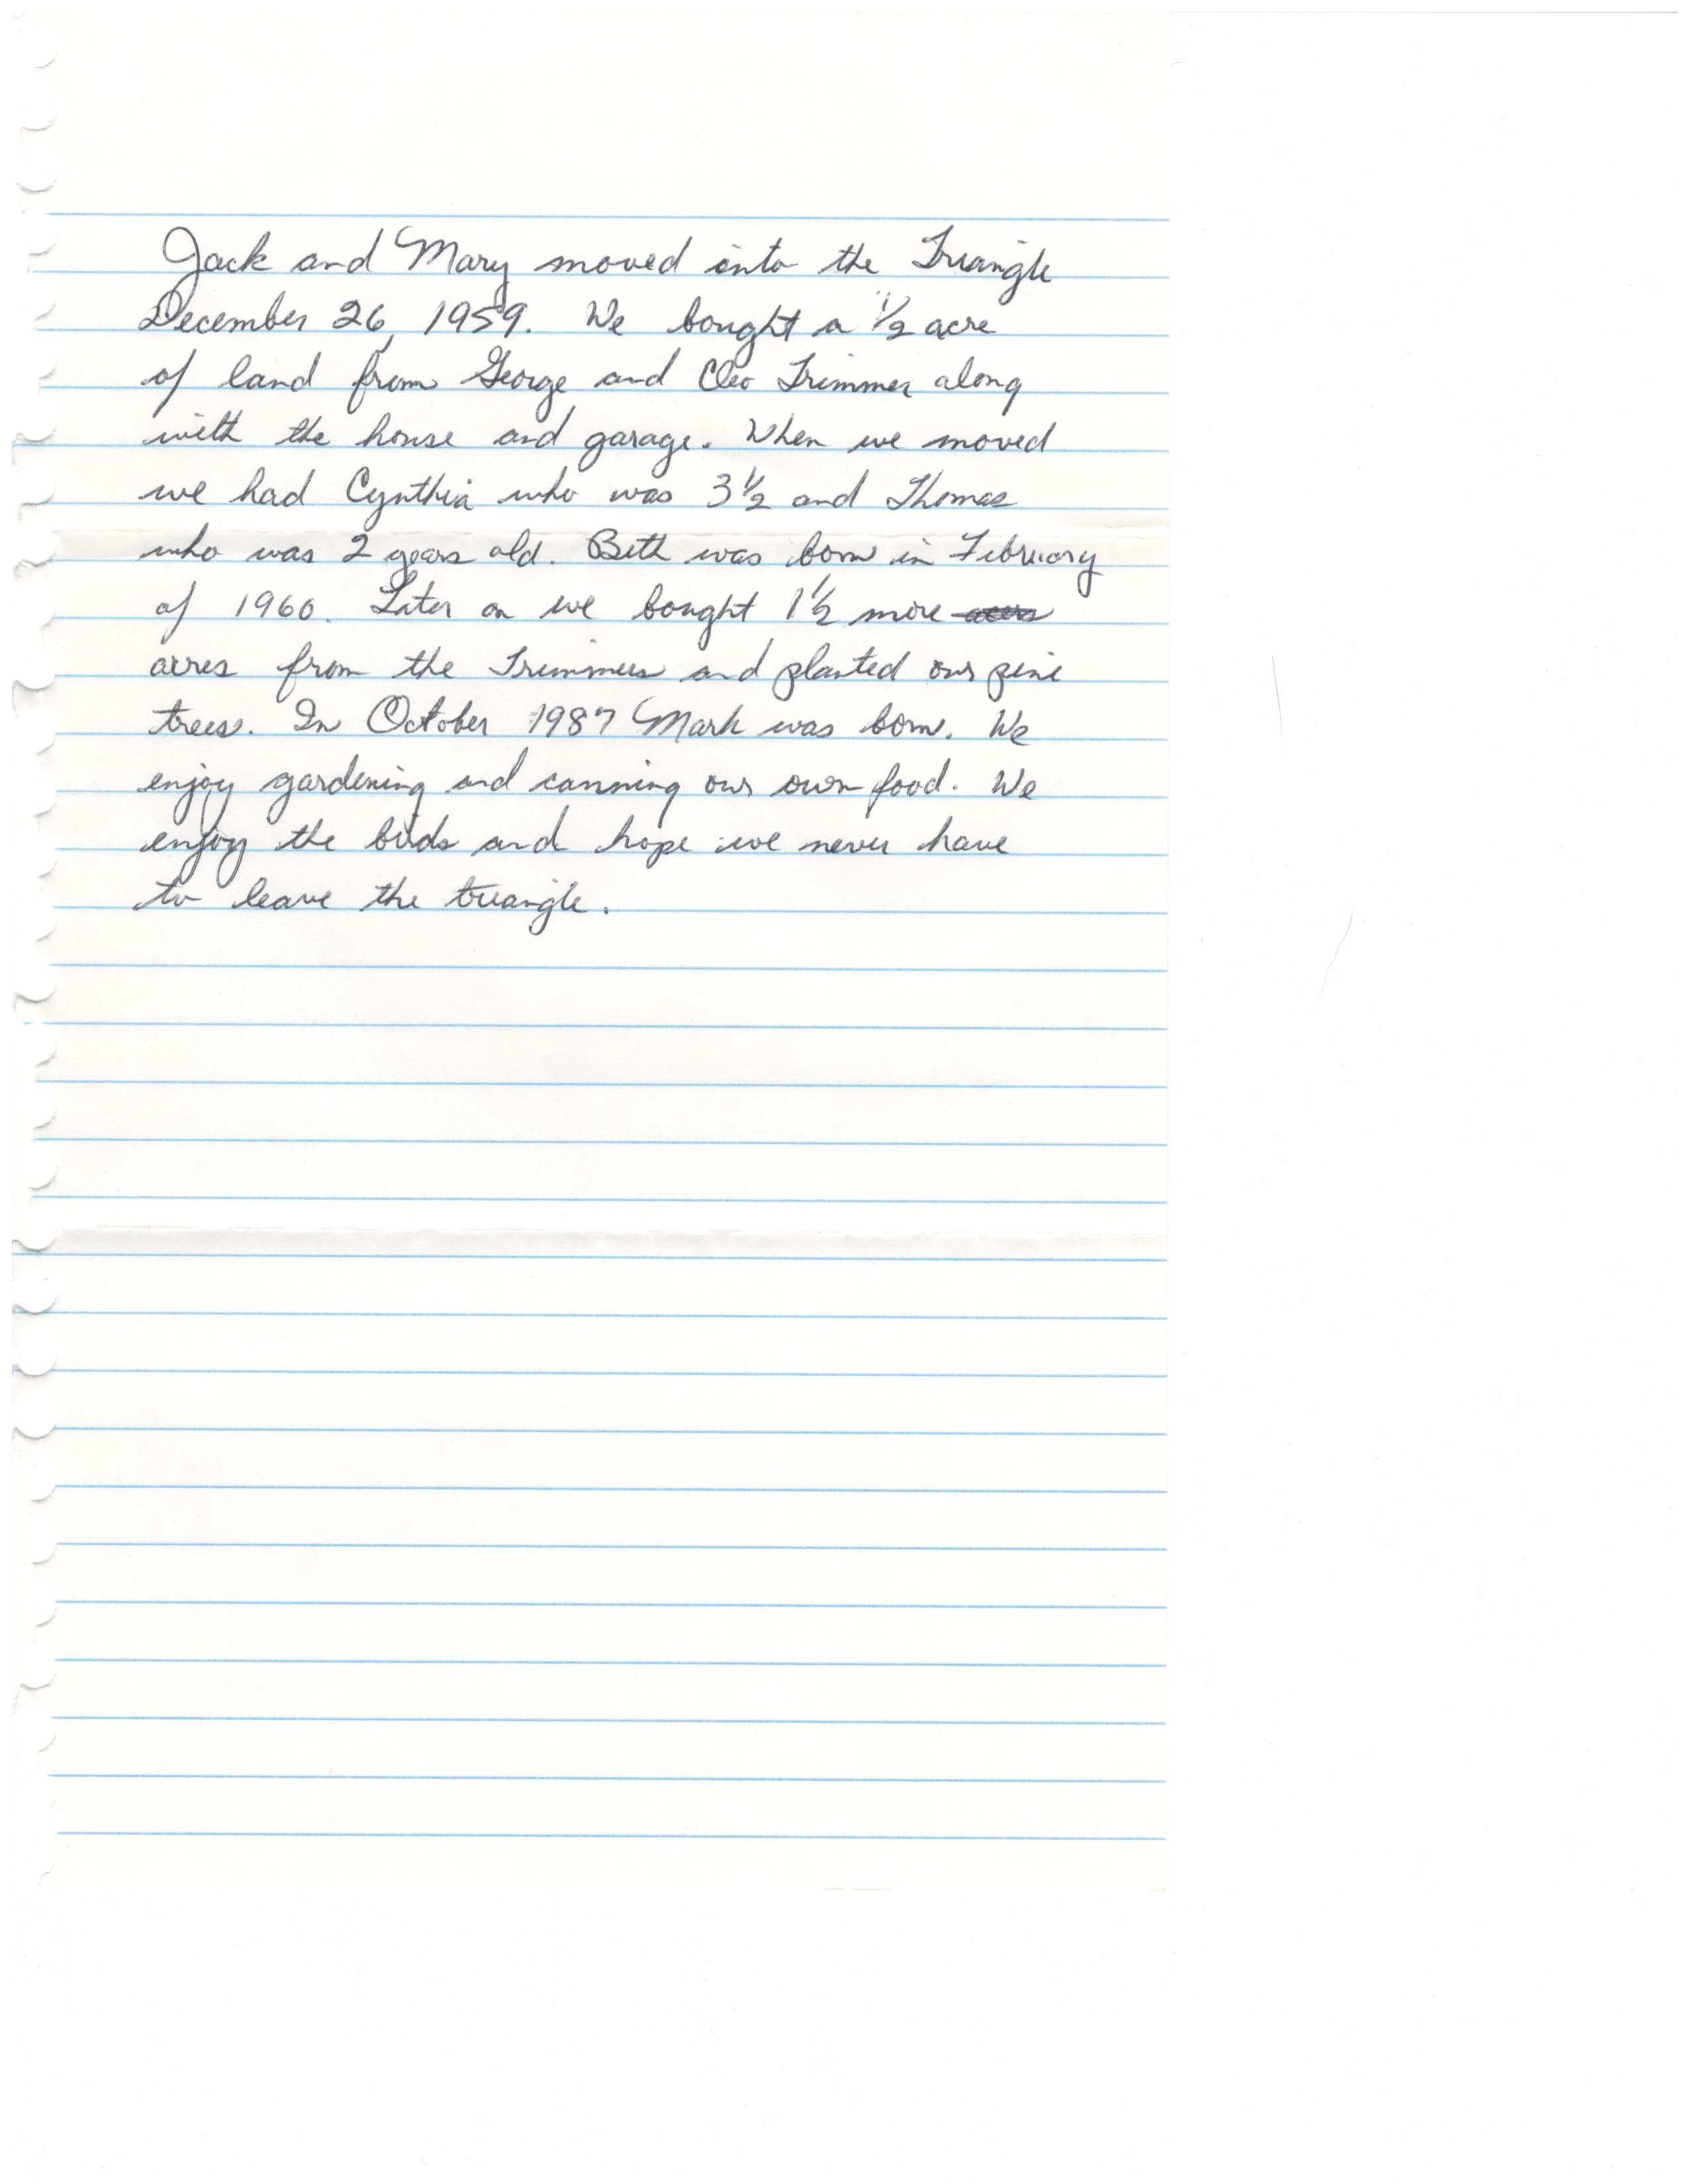 Jack and Mary moved into the Triangle
December 26, 1959. We bought a 1/2 acre
of land from George and Cleo Trimmer along
with the house and garage. When we moved
we had Cynthia who was 3 1/2 and Thomas
who was 2 years old. Beth was born in February
of 1960. Later on we bought 1 1/2 more
acres from the Trimmers and planted our pine
trees. In October 1987 Mark was born. We
enjoy gardening and canning our own food. We
enjoy the birds and hope we never have
to leave the triangle.